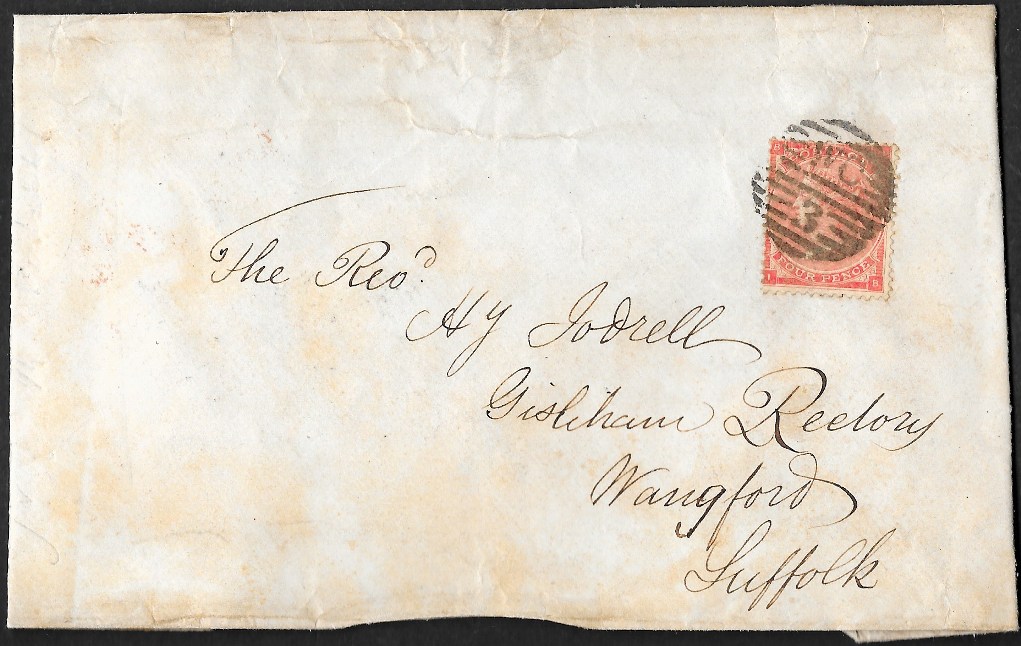 The Revd.
Hy Jodrell
Gisleham Rectory
Wangford
Suffolk
B
WC
3
FOUR PENCE
I B